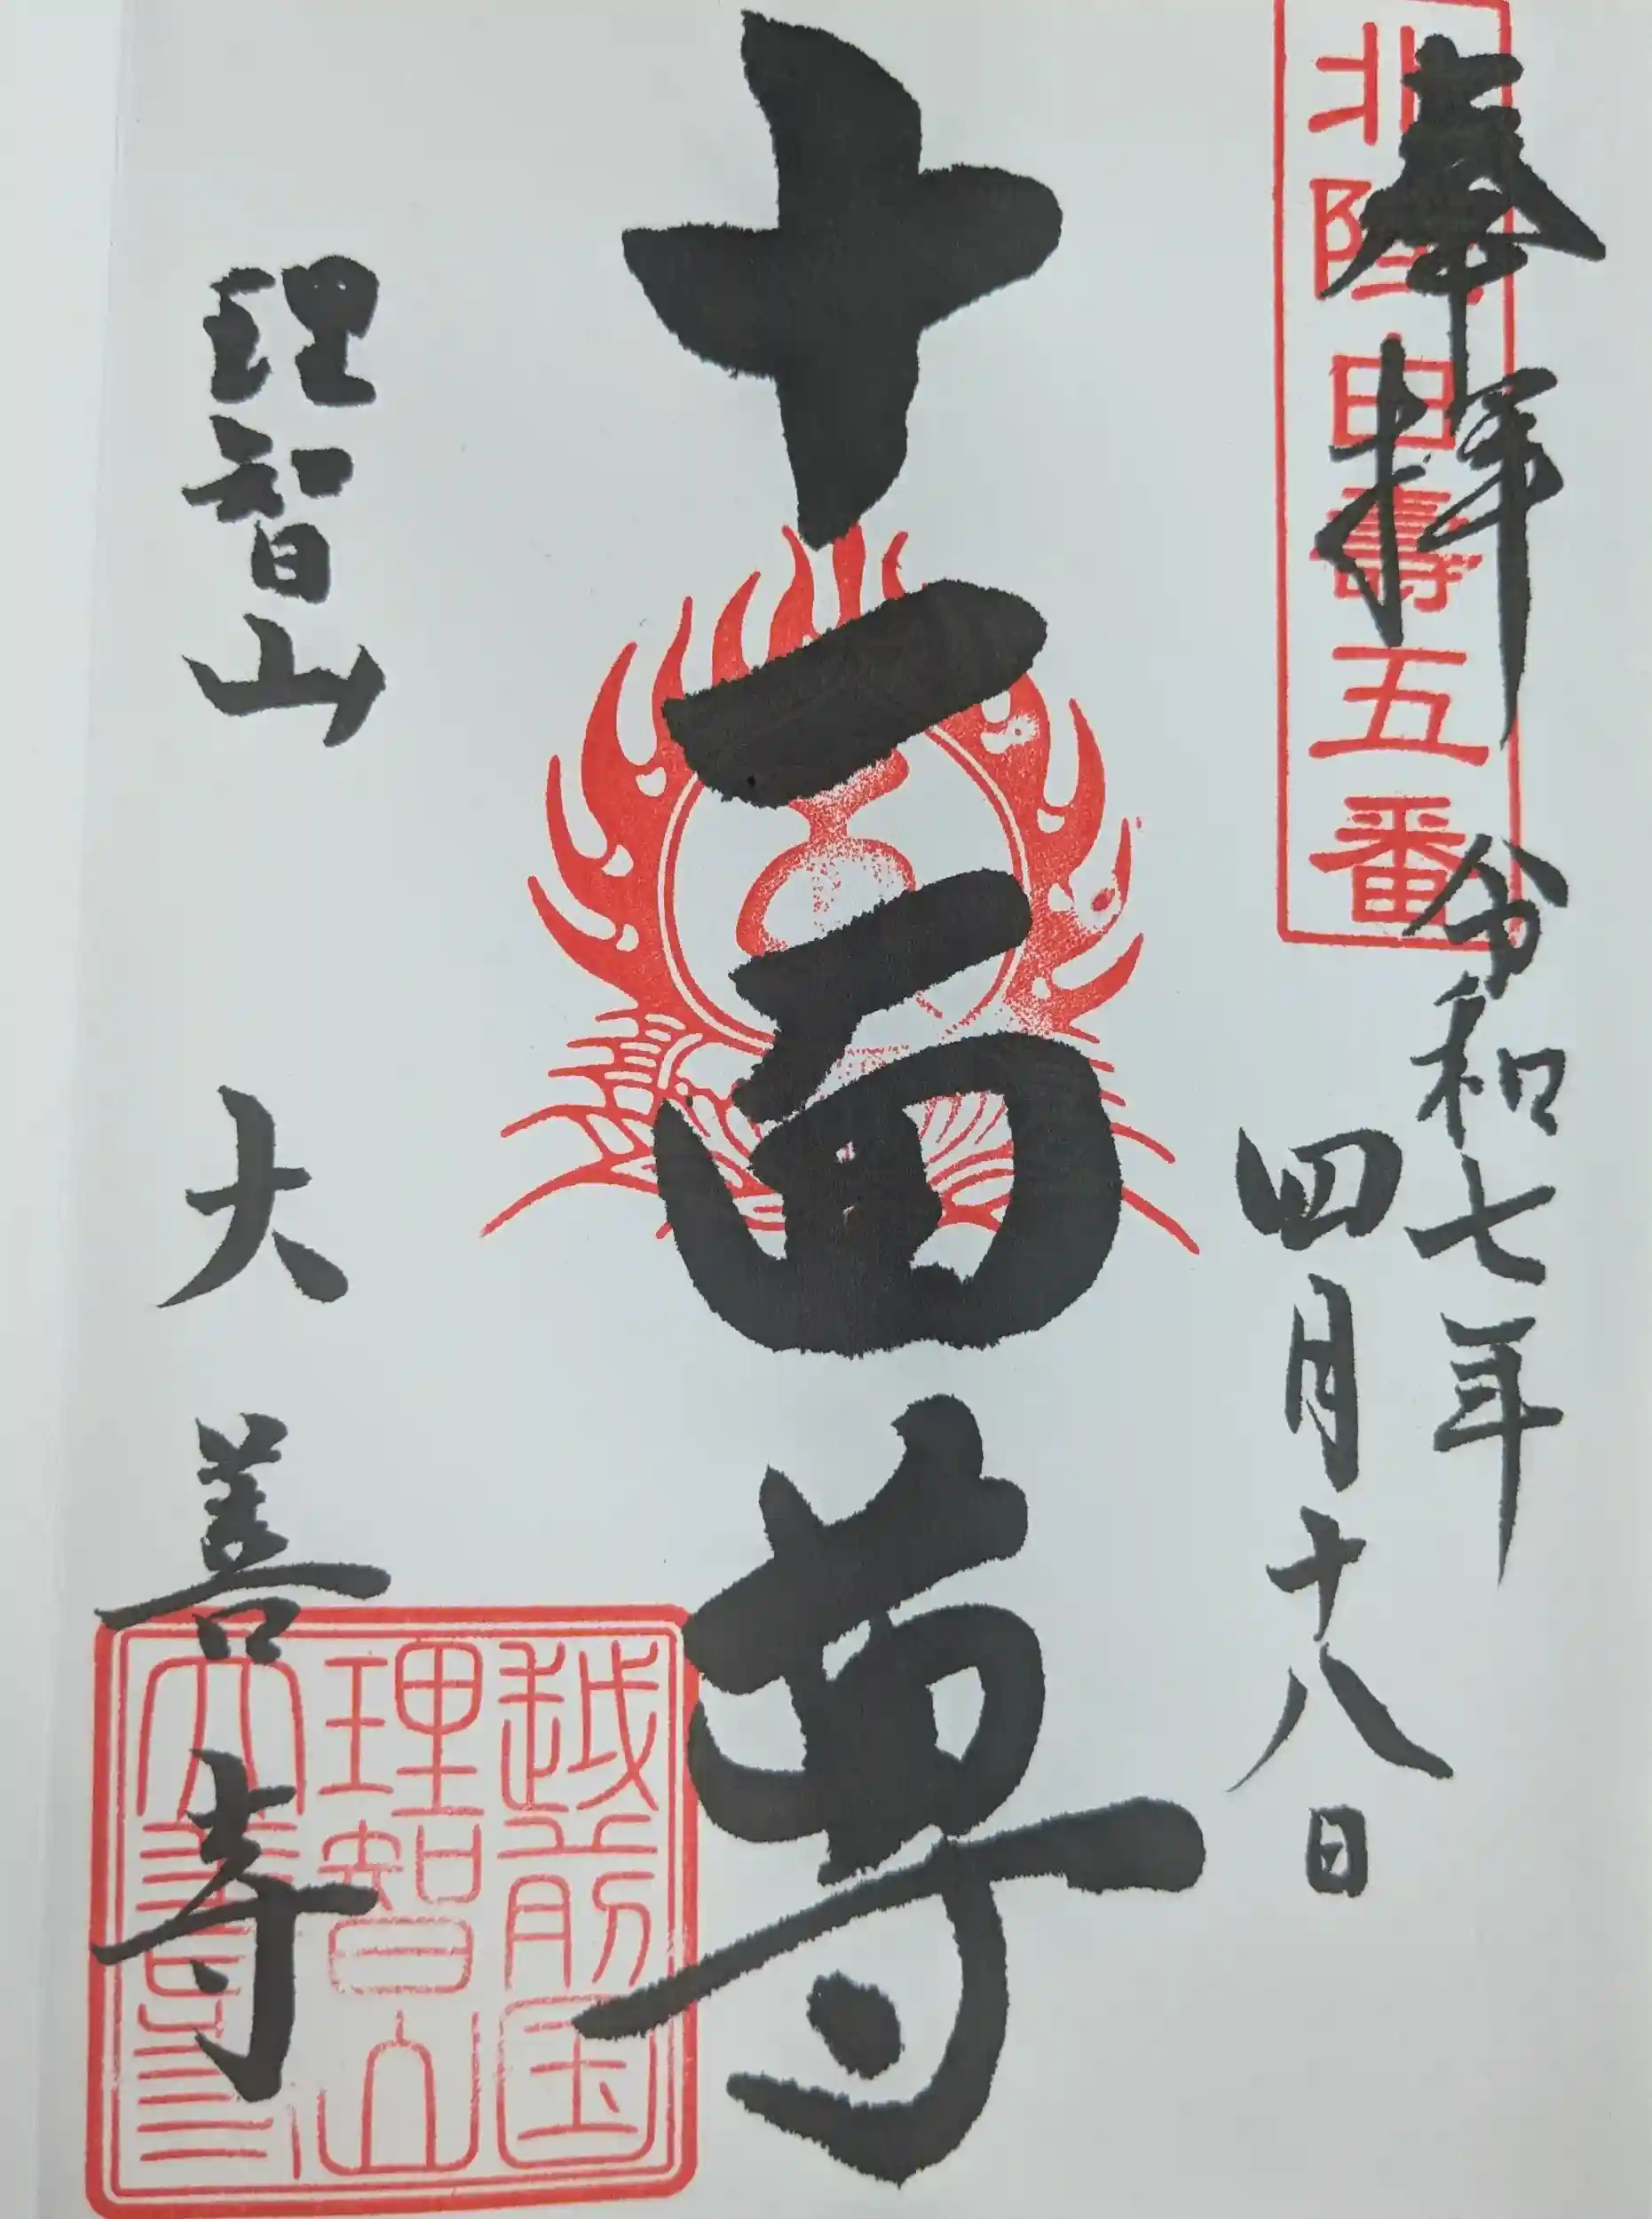 奉拝
北陸白寿五番
令和七年
四月十八日
十一面尊
理智山
大善寺
越前国
理智山
大善寺